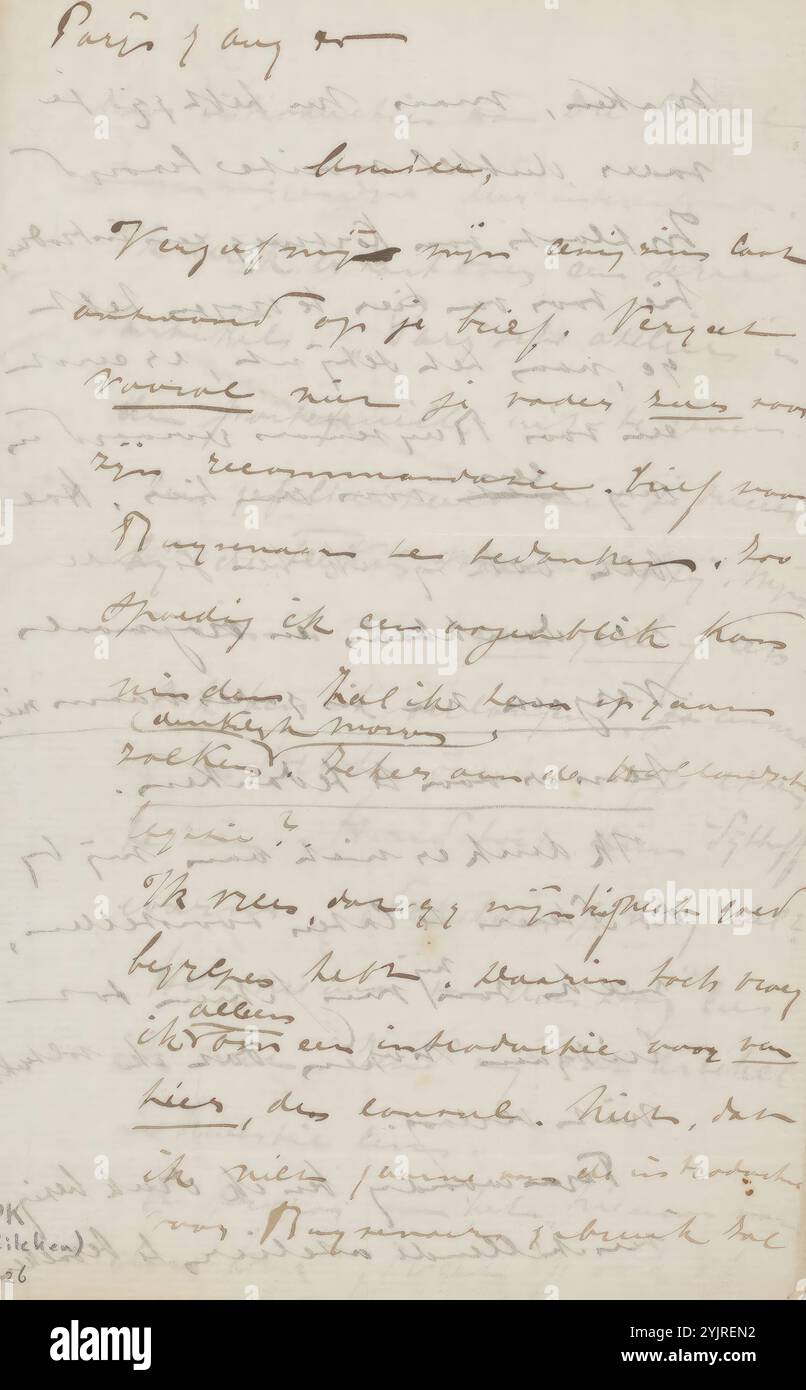 Parijs 7 aug
Amice,
Vergeef mij mijn enigzins laat
antwoord op je brief. Vergeet
vooral niet je vader zeer voor
zijn recommandasie. brief voor
Ruyssenaer te bedanken. Zoo
spoedig ik een oogenblik kan
vinden zal ik hem op gaan
(denkelijk morgen)
zoeken. Zeker aan de Hollandsche
legatie?
Ik vrees, dat gij mijn niet goed
begrepen hebt. Daarin toch vroeg
alleen
ik om een introductie voor van
hier, den consul. Niet, dat
ik niet gaarne van de introductie
voor Ruyssenaers gebruik zal
PK
Zilcken)
26
alamy
Image ID: 2YJREN2
www.alamy.com